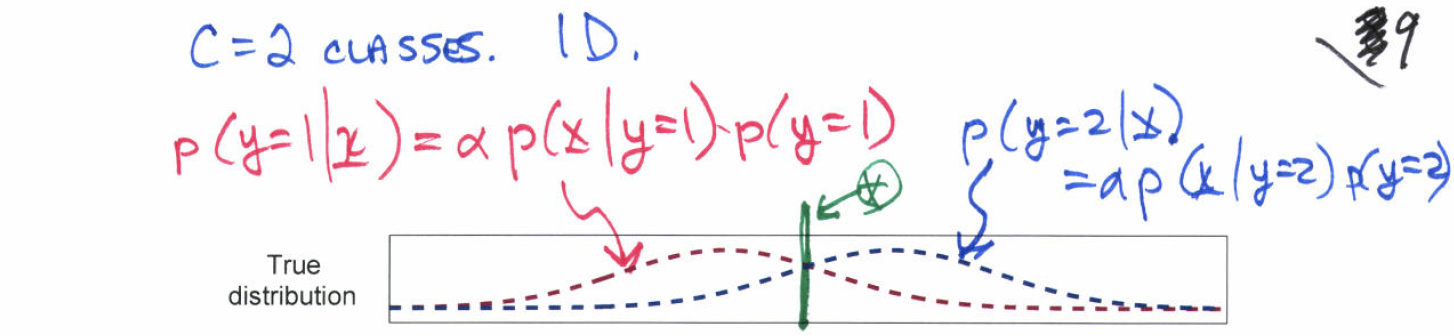 C=2 CLASSES. 1D.
9
p(y=1|x)=αp(x|y=1)·p(y=1)
p(y=2|x)
=αp(x|y=2)p(y=2)
x
True
distribution